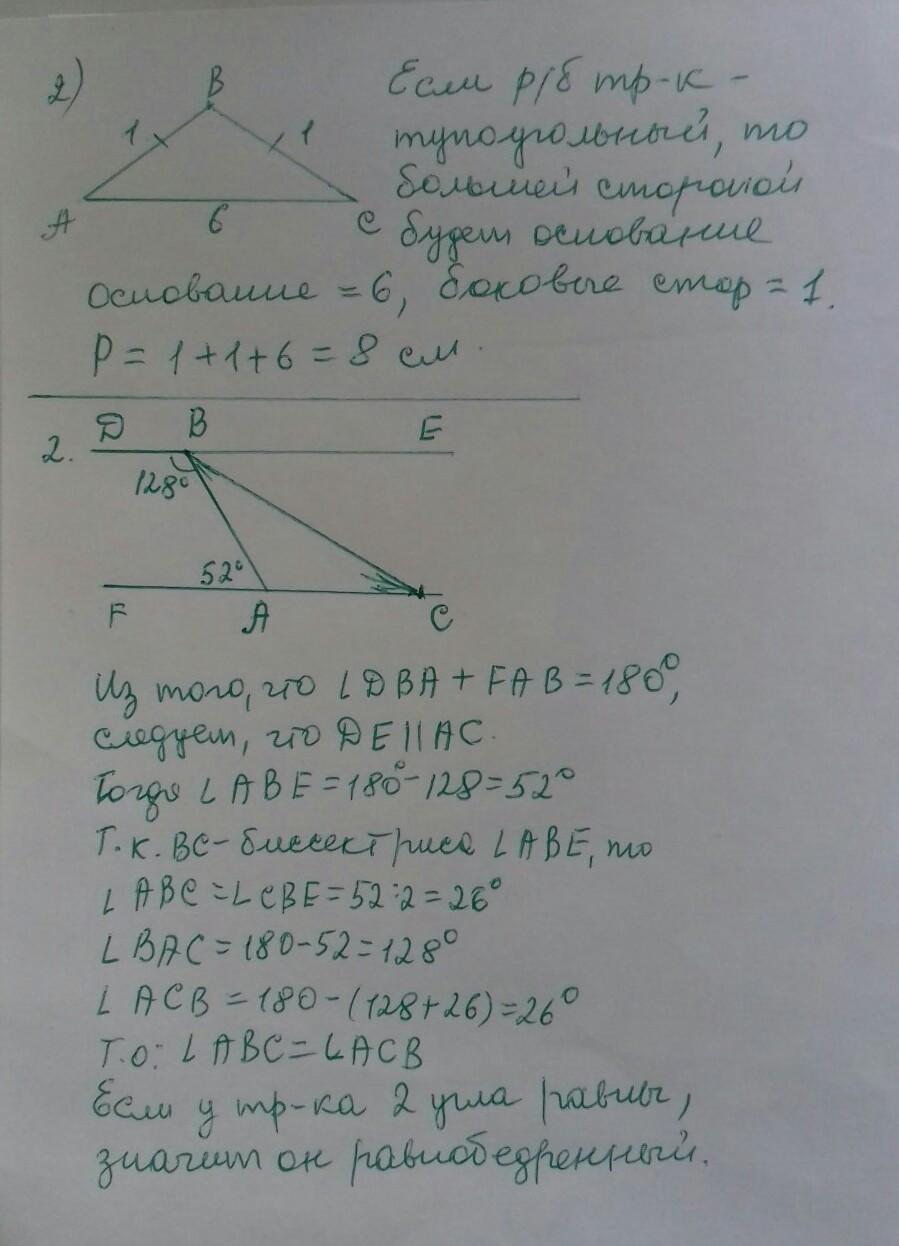 2)
B
1 1
A 6 C
Если р/б тр-к -
тупоугольный, то
большей стороной
будет основание
основание = 6, боковые стор = 1.
P = 1+1+6 = 8 см.
2.
D B E
128°
52°
F A C
Из того, что ∠DBA + FAB = 180°,
следует, что DE || AC.
Тогда ∠ABE = 180° - 128 = 52°
Т.к. BC - биссектриса ∠ABE, то
∠ABC = ∠CBE = 52:2 = 26°
∠BAC = 180-52 = 128°
∠ACB = 180-(128+26) = 26°
Т.о: ∠ABC = ∠ACB
Если у тр-ка 2 угла равны,
значит он равнобедренный.